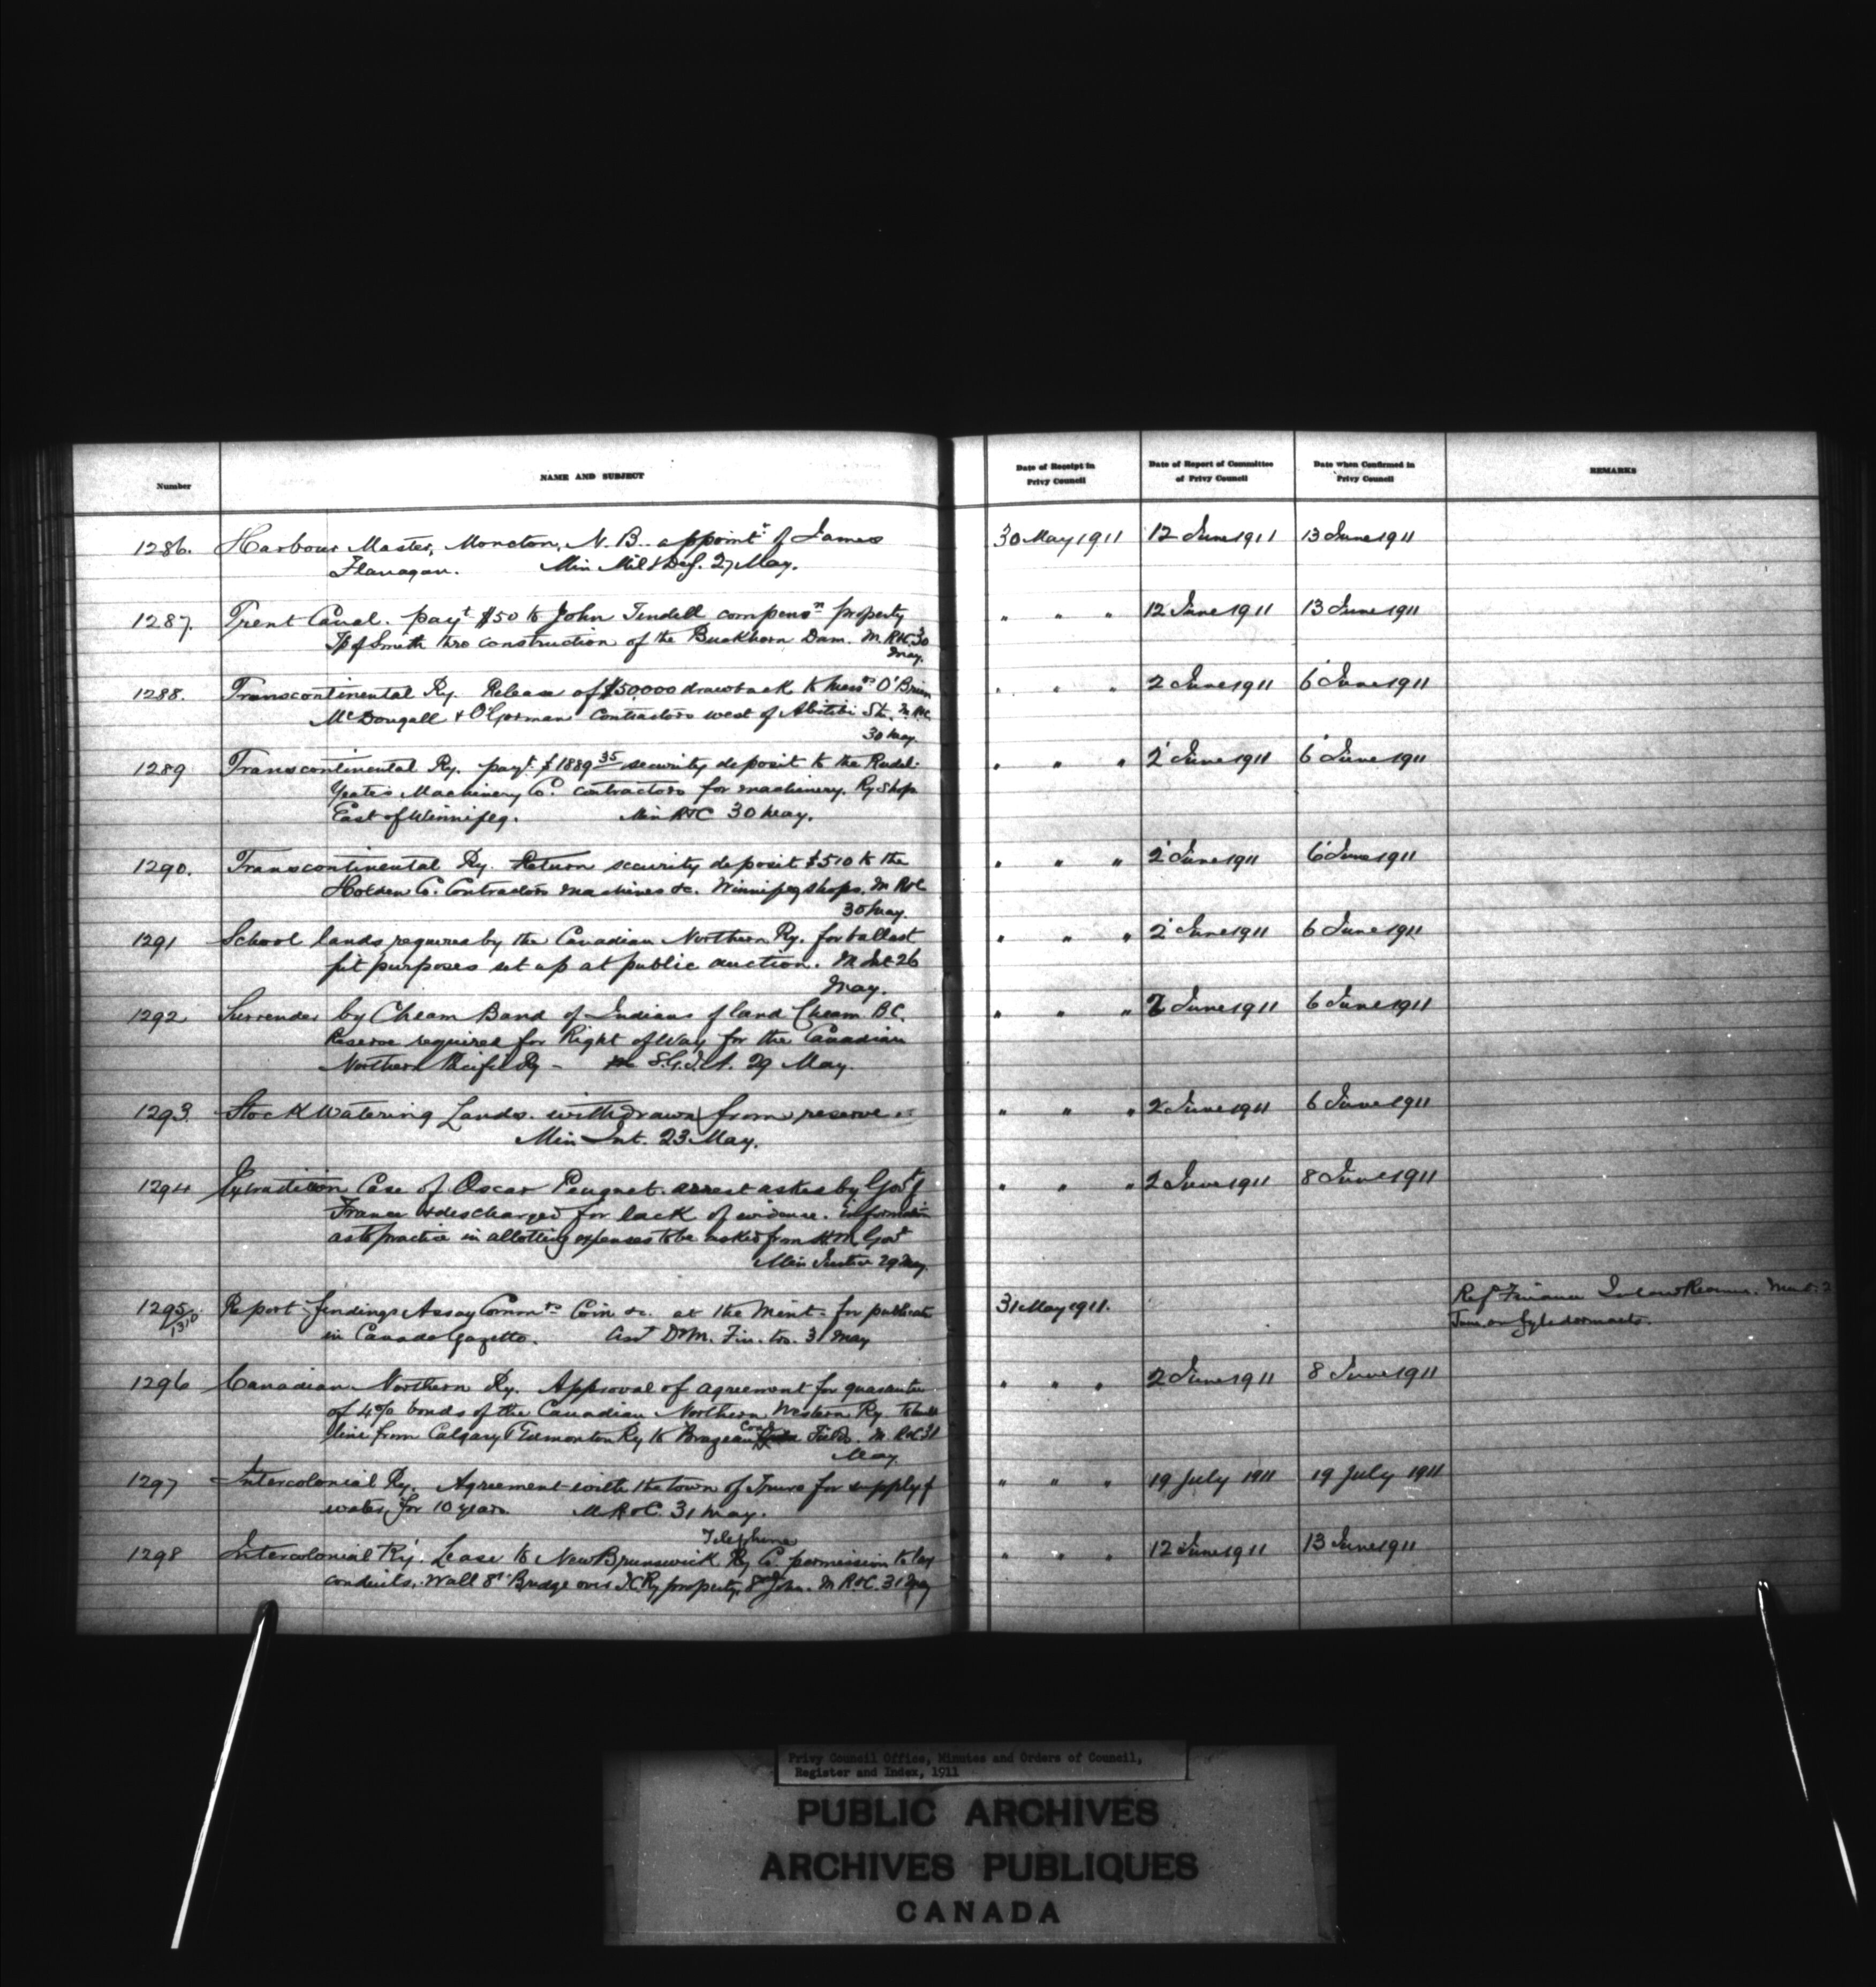 Number
NAME AND SUBJECT
Date of Receipt in
Privy Council
Date of Report of Committee
of Privy Council
Date when Confirmed in
Privy Council
REMARKS
1286. Harbour Master, Moncton, N.B. appointt of James 30 May 1911 12 June 1911 13 June 1911
Flanagan. Min Mil & Def. 27 May.
1287. Trent Canal. payt $50 to John Tindell compensn property " " " 12 June 1911 13 June 1911
Tp of Smith thro construction of the Buckhorn Dam. M. R&C 30
May.
1288. Transcontinental Ry. Release of $50,000 drawback to Messrs O'Brien " " " 2 June 1911 6 June 1911
McDougall & O'Gorman Contractors west of Abitibi St. M. R&C
30 May.
1289 Transcontinental Ry. payt $1889 35 security deposit to the Rudel- " " " 2 June 1911 6 June 1911
Yeates Machinery Co. contractors for machinery. Ry Shop
East of Winnipeg. Min R&C 30 May.
1290. Transcontinental Ry. Return security deposit $510 to the " " " 2 June 1911 6 June 1911
Holden Co. Contractors machines &c. Winnipeg shops. M R&C
30 May.
1291 School lands required by the Canadian Northern Ry. for ballast " " " 2 June 1911 6 June 1911
pit purposes set up at public auction. M Int 26
May.
1292 Surrender by Cheam Band of Indians of land Cheam B.C. " " " 2 June 1911 6 June 1911
Reserve required for Right of Way for the Canadian
Northern Pacific Ry - S.G.I.A. 29 May.
1293 Stock Watering Lands. withdrawn from reserve. " " " 2 June 1911 6 June 1911
Min Int. 23 May.
1294 Extradition Case of Oscar Peuquet. arrest asked by Govt of " " " 2 June 1911 8 June 1911
France & discharged for lack of evidence. information
as to practice in allotting expenses to be asked from H.M. Govt
Min Justice 29 May.
1295/1310 Report findings Assay Commrs Coin &c. at the Mint- for publicatn 31 May 1911. Ref Finance
in Canada Gazette. Asst D.M. Fin. 31 May June on
1296 Canadian Northern Ry. Approval of agreement for guarantee " " " 2 June 1911 8 June 1911
of 4% bonds of the Canadian Northern Western Ry. to build
line from Calgary & Edmonton Ry to Brazeau Coal Fields. M R&C 31
May
1297 Intercolonial Ry. Agreement with the town of Truro for supply of " " " 19 July 1911 19 July 1911
water for 10 years M. R&C. 31 May.
1298 Intercolonial Ry. Lease to New Brunswick Telephone Co. permission to lay " " " 12 June 1911 13 June 1911
conduits, Wall St. Bridge over ICRy property, St John. M R&C. 31 May
Privy Council Office, Minutes and Orders of Council,
Register and Index, 1911
PUBLIC ARCHIVES
ARCHIVES PUBLIQUES
CANADA